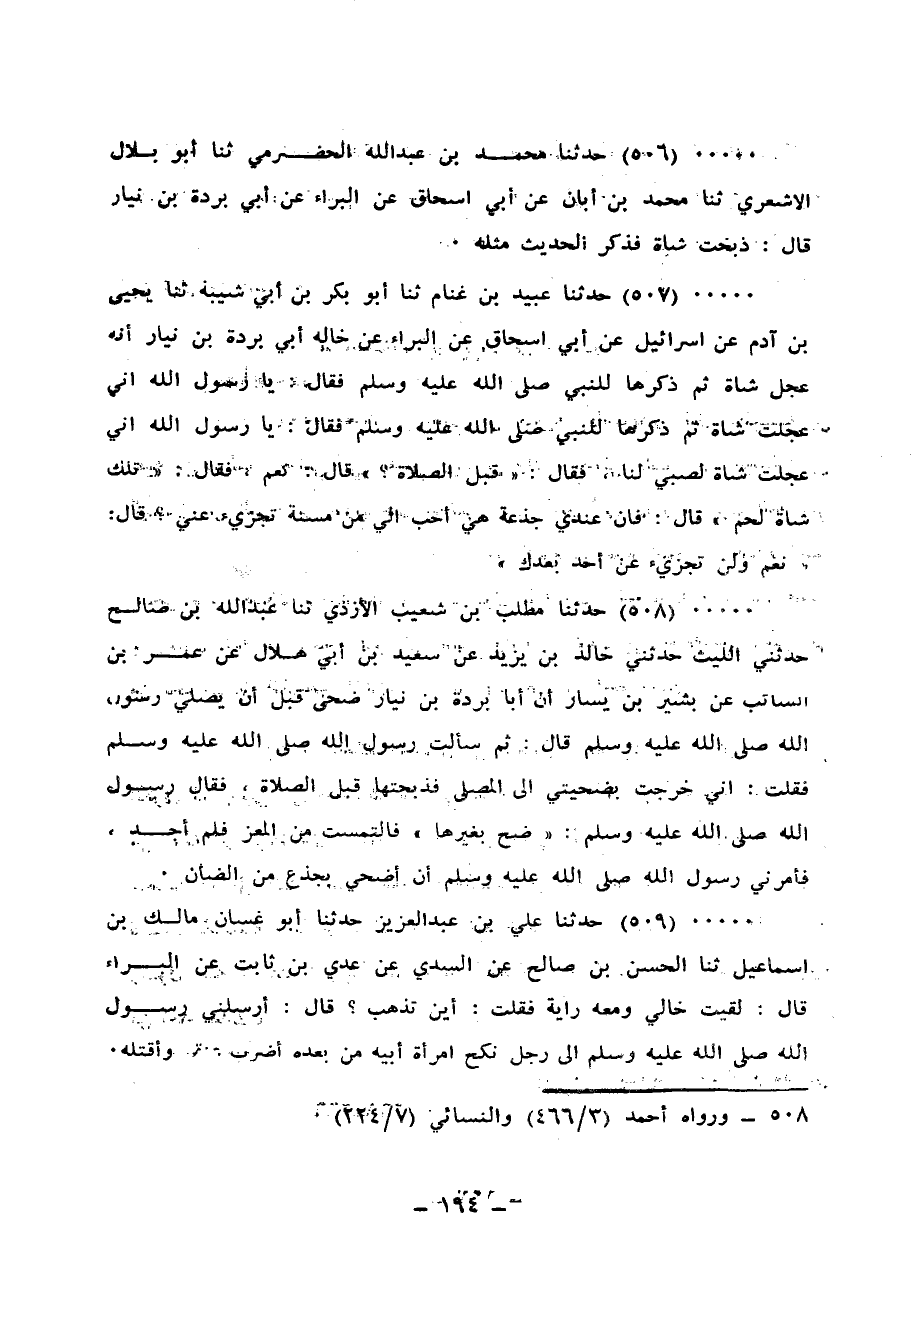 ٠٠٠٠٠ (٥٠٦) حدثنا محمد بن عبدالله الحضرمي ثنا أبو بلال
الاشعري ثنا محمد بن أبان عن أبي اسحاق عن البراء عن أبي بردة بن نيار
قال : ذبحت شاة فذكر الحديث مثله ٠
٠٠٠٠٠ (٥٠٧) حدثنا عبيد بن غنام ثنا أبو بكر بن أبي شيبة ثنا يحيى
بن آدم عن اسرائيل عن أبي اسحاق عن البراء عن خاله أبي بردة بن نيار أنه
عجل شاة ثم ذكرها للنبي صلى الله عليه وسلم فقال : يا رسول الله اني
عجلت شاة ثم ذكرها للنبي صلى الله عليه وسلم فقال : يا رسول الله اني
عجلت شاة لصبي لنا ، فقال : « قبل الصلاة ؟ » قال : نعم ، فقال : « تلك
شاة لحم » قال : فان عندي جذعة هي أحب الي من مسنة تجزيء عني ؟ قال :
« نعم ولن تجزيء عن أحد بعدك »
٠٠٠٠٠ (٥٠٨) حدثنا مطلب بن شعيب الأزدي ثنا عبدالله بن صالح
حدثني الليث حدثني خالد بن يزيد عن سعيد بن أبي هلال عن عمر بن
السائب عن بشير بن يسار أن أبا بردة بن نيار ضحى قبل أن يصلي رسول
الله صلى الله عليه وسلم قال : ثم سألت رسول الله صلى الله عليه وسلم
فقلت : اني خرجت بضحيتي الى المصلى فذبحتها قبل الصلاة ، فقال رسول
الله صلى الله عليه وسلم : « ضح بغيرها » فالتمست من المعز فلم أجد ،
فأمرني رسول الله صلى الله عليه وسلم أن أضحي بجذع من الضأن ٠
٠٠٠٠٠ (٥٠٩) حدثنا علي بن عبدالعزيز حدثنا أبو غسان مالك بن
اسماعيل ثنا الحسن بن صالح عن السدي عن عدي بن ثابت عن البراء
قال : لقيت خالي ومعه راية فقلت : أين تذهب ؟ قال : أرسلني رسول
الله صلى الله عليه وسلم الى رجل نكح امرأة أبيه من بعده أضرب وأقتله ٠
٥٠٨ ــ ورواه أحمد (٤٦٦/٣) والنسائي (٢٢٤/٧) ٠
ــ ١٩٤ ــ